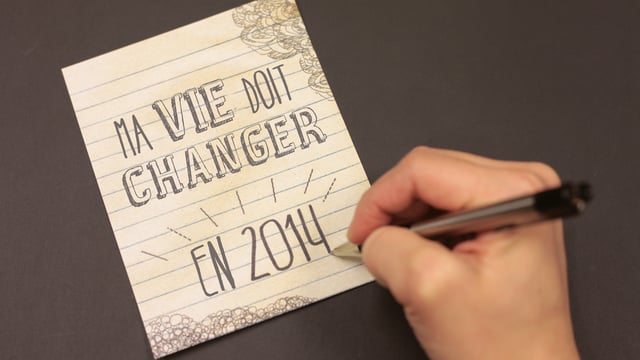 MA VIE DOIT
CHANGER
EN 2014